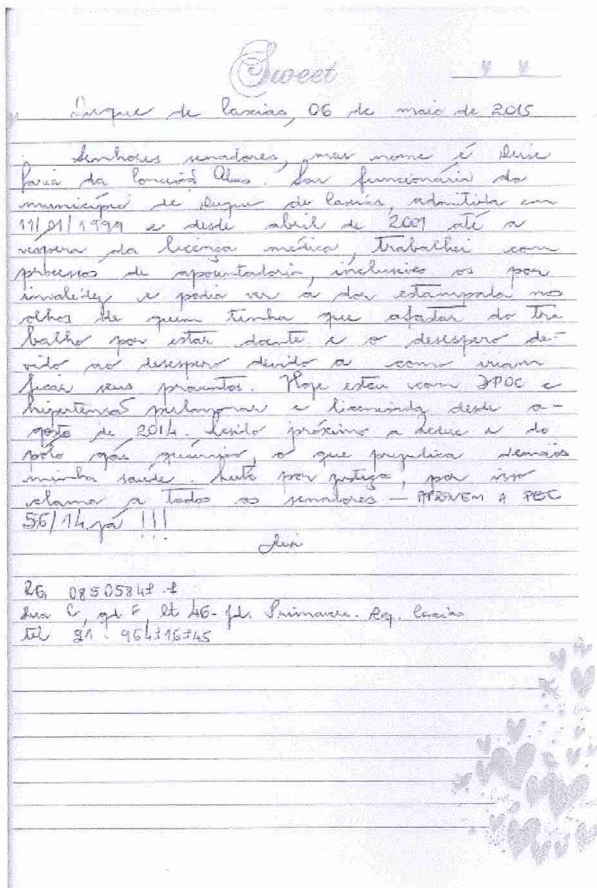 Sweet
Duque de Caxias, 06 de maio de 2015
Senhores senadores, meu nome é
faria da Conceição Alves. Sou funcionária do
município de Duque de Caxias, admitida em
11/01/1999 e desde abril de 2001 até a
véspera da licença médica, trabalhei com
processos de aposentadoria, inclusive os por
invalidez e podia ver a dor estampada nos
olhos de quem tinha que afastar do tra
balho por estar doente e o desespero de-
vido ao desespero devido a como iriam
ficar seus proventos. Hoje estou com DPOC e
hipertensão pulmonar e licenciada desde a-
gosto de 2014. Resido próximo a Reduc e do
pólo gás químico, o que prejudica demais
minha saúde. Luto por justiça, por isso
clamo a todos os senadores — APROVEM A PEC
56/14 já !!!
RG 08505847-7
Rua C, qd F, lt 46- Jd. Primavera. Dq. Caxias
tel 21 - 964716745